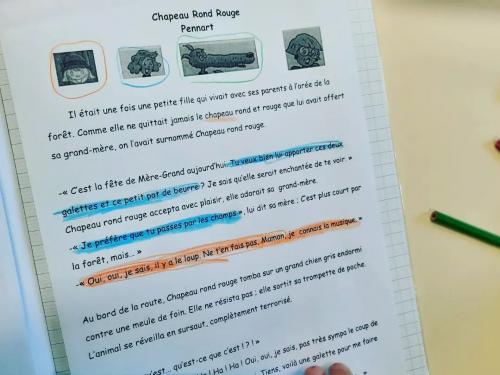 Chapeau Rond Rouge
Pennart
Il était une fois une petite fille qui vivait avec ses parents à l'orée de la
forêt. Comme elle ne quittait jamais le chapeau rond et rouge que lui avait offert
sa grand-mère, on l'avait surnommé Chapeau rond rouge.
-« C'est la fête de Mère-Grand aujourd'hui. Tu veux bien lui apporter ces deux
galettes et ce petit pot de beurre ? Je sais qu'elle serait enchantée de te voir. »
Chapeau rond rouge accepta avec plaisir, elle adorait sa grand-mère.
-« Je préfère que tu passes par les champs », lui dit sa mère ; C'est plus court par
la forêt, mais... »
-« Oui, oui, je sais, il y a le loup. Ne t'en fais pas, Maman, je connais la musique. »
Au bord de la route, Chapeau rond rouge tomba sur un grand chien gris endormi
contre une meule de foin. Elle ne résista pas ; elle sortit sa trompette de poche.
L'animal se réveilla en sursaut, complètement terrorisé.
qu'est... qu'est-ce que c'est ! ? ! »
! Ha ! Ha ! Oui, oui, je sais, pas très sympa le coup de
Tiens, voilà une galette pour me faire